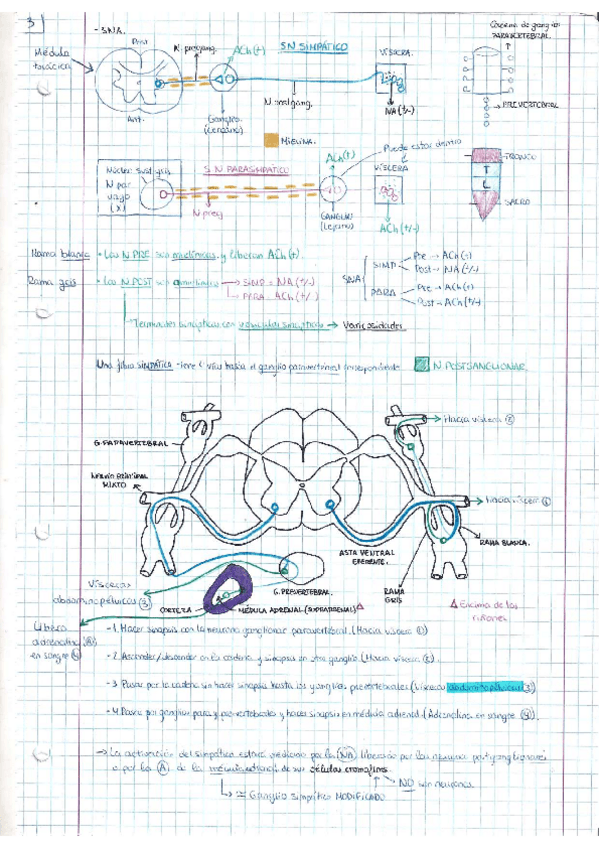 3
- SNA.
Cadena de ganglios
PARAVERTEBRAL.
Post
N. pregang.
ACh(+)
SN SIMPÁTICO
VÍSCERA
Médula
torácica
N. postgang.
NA (+/-)
PREVERTEBRAL
Ant.
Ganglio
(cercano)
MIELINA.
ACh(+)
Puede estar dentro
Núcleo sust gris
N par
vago
(X)
SN PARASIMPÁTICO
VÍSCERA
TRONCO
T
L
SACRO
N preg
GANGLIO
(Lejano)
ACh (+/-)
Rama blanca
• Las N PRE son mielínicas y liberan ACh(+).
Rama gris
• Las N POST son amielínicas
SIMP = NA (+/-)
PARA = ACh (+/-)
SNA
SIMP
Pre → ACh (+)
Post → NA (+/-)
PARA
Pre → ACh (+)
Post → ACh (+/-)
Terminales sinápticos con vesículas sinápticas → Varicosidades
Una fibra SIMPÁTICA tiene 4 vías hasta el ganglio paravertebral correspondiente
N POSTGANGLIONAR
G. PARAVERTEBRAL
Hacia víscera ②
MIXTO
Hacia víscera ①
ASTA VENTRAL
EFERENTE.
RAMA BLANCA.
Vísceras
abdominopélvicas ③
G. PREVERTEBRAL.
RAMA
GRIS
CORTEZA
MÉDULA ADRENAL (SUPRARRENAL) △
△ Encima de los
riñones
Libera
adrenalina (A)
en sangre ④
- 1. Hacer sinapsis con la neurona ganglionar paravertebral. (Hacia víscera ①)
- 2. Ascender/descender en la cadena y sinapsis en otro ganglio. (Hacia víscera ②).
- 3. Pasar por la cadena sin hacer sinapsis hasta los ganglios prevertebrales (Vísceras abdominopélvicas ③)
- 4. Pasar por ganglios para y prevertebrales y hacer sinapsis en médula adrenal. (Adrenalina en sangre ④).
→ La activación del simpático estará mediada por la (NA) liberada por las neuronas postganglionares
o por la (A) de la médula adrenal de sus células cromafines
NO son neuronas
≅ Ganglio simpático MODIFICADO